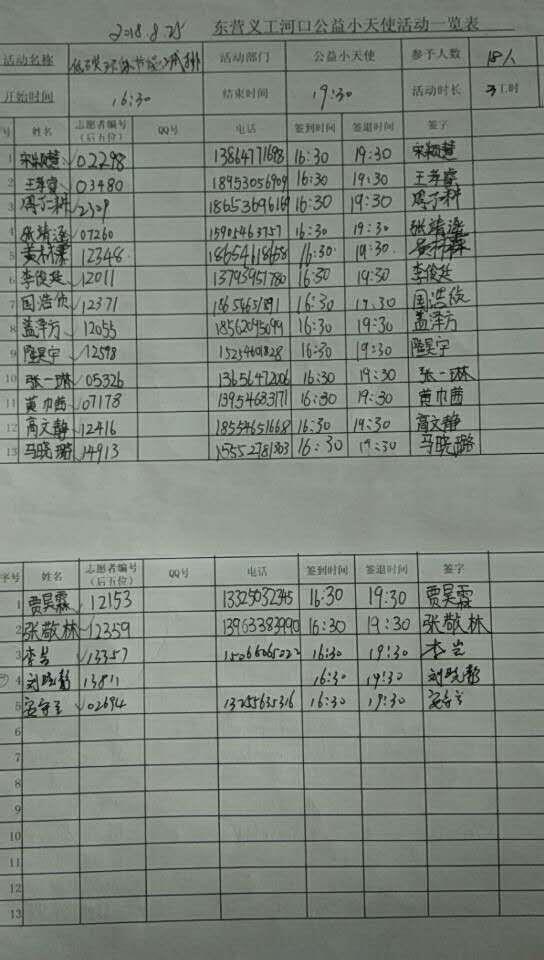 2018.8.25 东营义工河口公益小天使活动一览表
活动名称 低碳环保节能减排 活动部门 公益小天使 参予人数 18人
开始时间 16:30 结束时间 19:30 活动时长 3工时
号 姓名 志愿者编号(后五位) QQ号 电话 签到时间 签退时间 签字
1 宋颖慧 02298 13864771698 16:30 19:30 宋颖慧
2 王孝睿 03480 18953056909 16:30 19:30 王孝睿
3 周子科 2309 18653696169 16:30 19:30 周子科
4 张靖逵 07260 15905463757 16:30 19:30 张靖逵
5 12348 18654118658 16:30 19:30
6 李俊廷 12011 13793951780 16:30 19:30 李俊廷
7 国浩侦 12371 16:30 19:30 国浩侦
8 盖泽方 12055 18562095099 16:30 19:30 盖泽方
9 隆昊宇 12598 15254601828 16:30 19:30 隆昊宇
10 张一琳 05326 13656472006 16:30 19:30 张一琳
11 黄巾茜 07178 13954683171 16:30 19:30 黄巾茜
12 高文静 12416 18554651668 16:30 19:30 高文静
13 马晓璐 14913 15552781303 16:30 19:30 马晓璐
字号 姓名 志愿者编号(后五位) QQ号 电话 签到时间 签退时间 签字
1 贾昊霖 12153 13325032345 16:30 19:30 贾昊霖
2 张敬林 12359 13963383990 16:30 19:30 张敬林
3 李岩 13357 16:30 19:30 李岩
4 刘晓静 13811 16:30 19:30 刘晓静
5 02694 13255635316 16:30 19:30
6
7
8
9
10
11
12
13